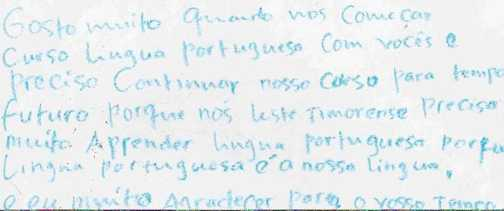 Gosto muito quando nós Começar
Curso Lingua portuguesa Com vocês e
preciso Continuar nosso Curso para tempo
futuro porque nós leste Timorense preciso
muito Aprender lingua portuguesa porqu
Lingua portuguesa é a nossa lingua,
e eu muito Agradecer para o vosso Tempo